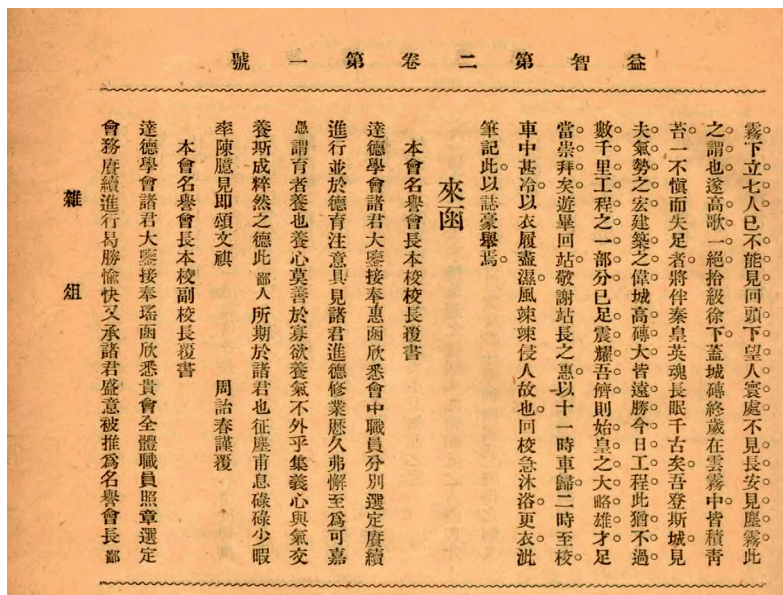 益智第二卷第一號
霧下立七人已不能見回頭下望人寰處不見長安見塵霧此
之謂也遂高歌一絕拾級徐下蓋城磚終歲在雲霧中皆積青
苔一不愼而失足者將伴秦皇英魂長眠千古矣吾登斯城見
夫氣勢之宏建築之偉城高磚大皆遠勝今日工程此猶不過
數千里工程之一部分已足震耀吾儕則始皇之大略雄才足
當崇拜矣遊畢回站敬謝站長之惠以十一時車歸二時至校
車中甚冷以衣履盡濕風竦竦侵人故也回校急沐浴更衣泚
筆記此以誌豪舉焉
來函
本會名譽會長本校校長覆書
達德學會諸君大鑒接奉惠函欣悉會中職員分別選定賡續
進行並於德育注意具見諸君進德修業歷久弗懈至爲可嘉
愚謂育者養也養心莫善於寡欲養氣不外乎集義心與氣交
養斯成粹然之德此鄙人所期於諸君也征塵甫息碌碌少暇
率陳臆見即頌文祺　周詒春謹覆
本會名譽會長本校副校長覆書
達德學會諸君大鑒接奉瑤函欣悉貴會全體職員照章選定
會務賡續進行曷勝愉快又承諸君盛意被推爲名譽會長鄙
雜俎